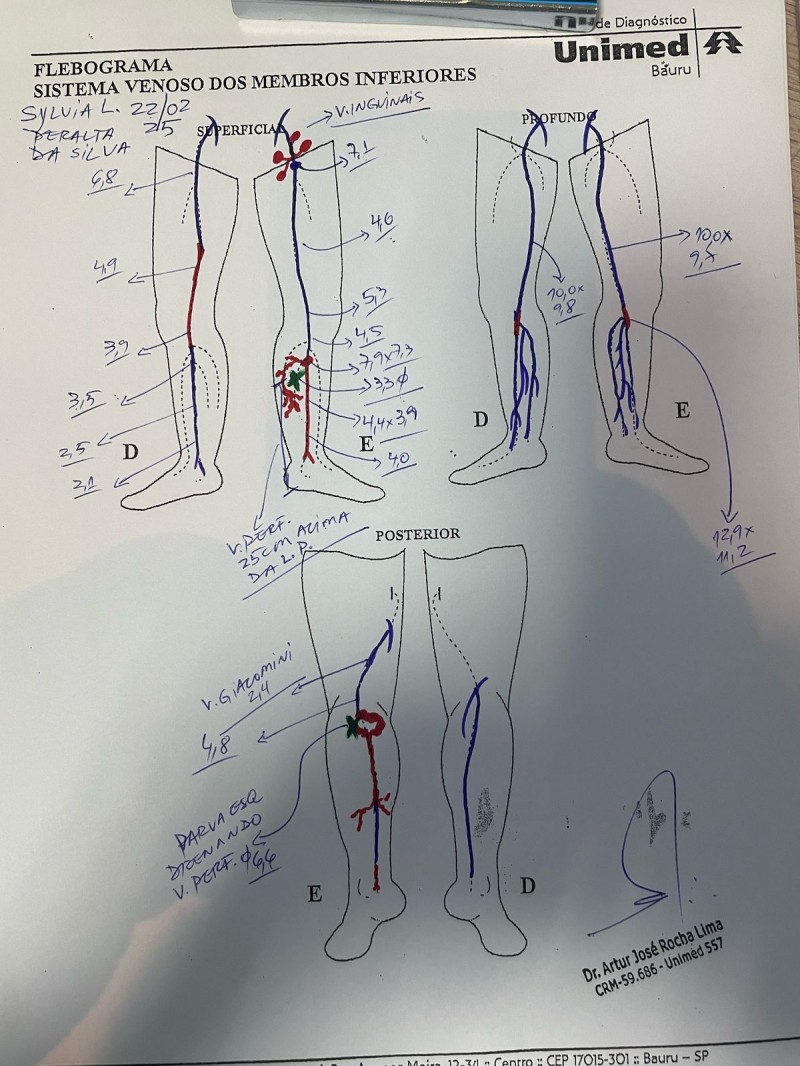 de Diagnóstico
Unimed
Bauru
FLEBOGRAMA
SISTEMA VENOSO DOS MEMBROS INFERIORES
SYLVIA L. 22/02
PERALTA 25
DA SILVA
SUPERFICIAL
V. INGUINAIS
PROFUNDO
6,8
7,1
4,6
4,9
10,0x
9,7
10,0x
9,8
5,7
4,5
3,9
7,9x7,3
3,3φ
3,5
4,4x3,9
2,5
D
E
4,0
2,1
D
E
V. PERF.
25CM ACIMA
DA L.P.
12,9x
11,2
POSTERIOR
V. GIACOMINI
2,4
4,8
PARVA ESQ
DRENANDO
V. PERF. φ6,6
E
D
Dr. Artur José Rocha Lima
CRM-59.686 - Unimed 557
12-34 :: Centro :: CEP 17015-301 :: Bauru – SP